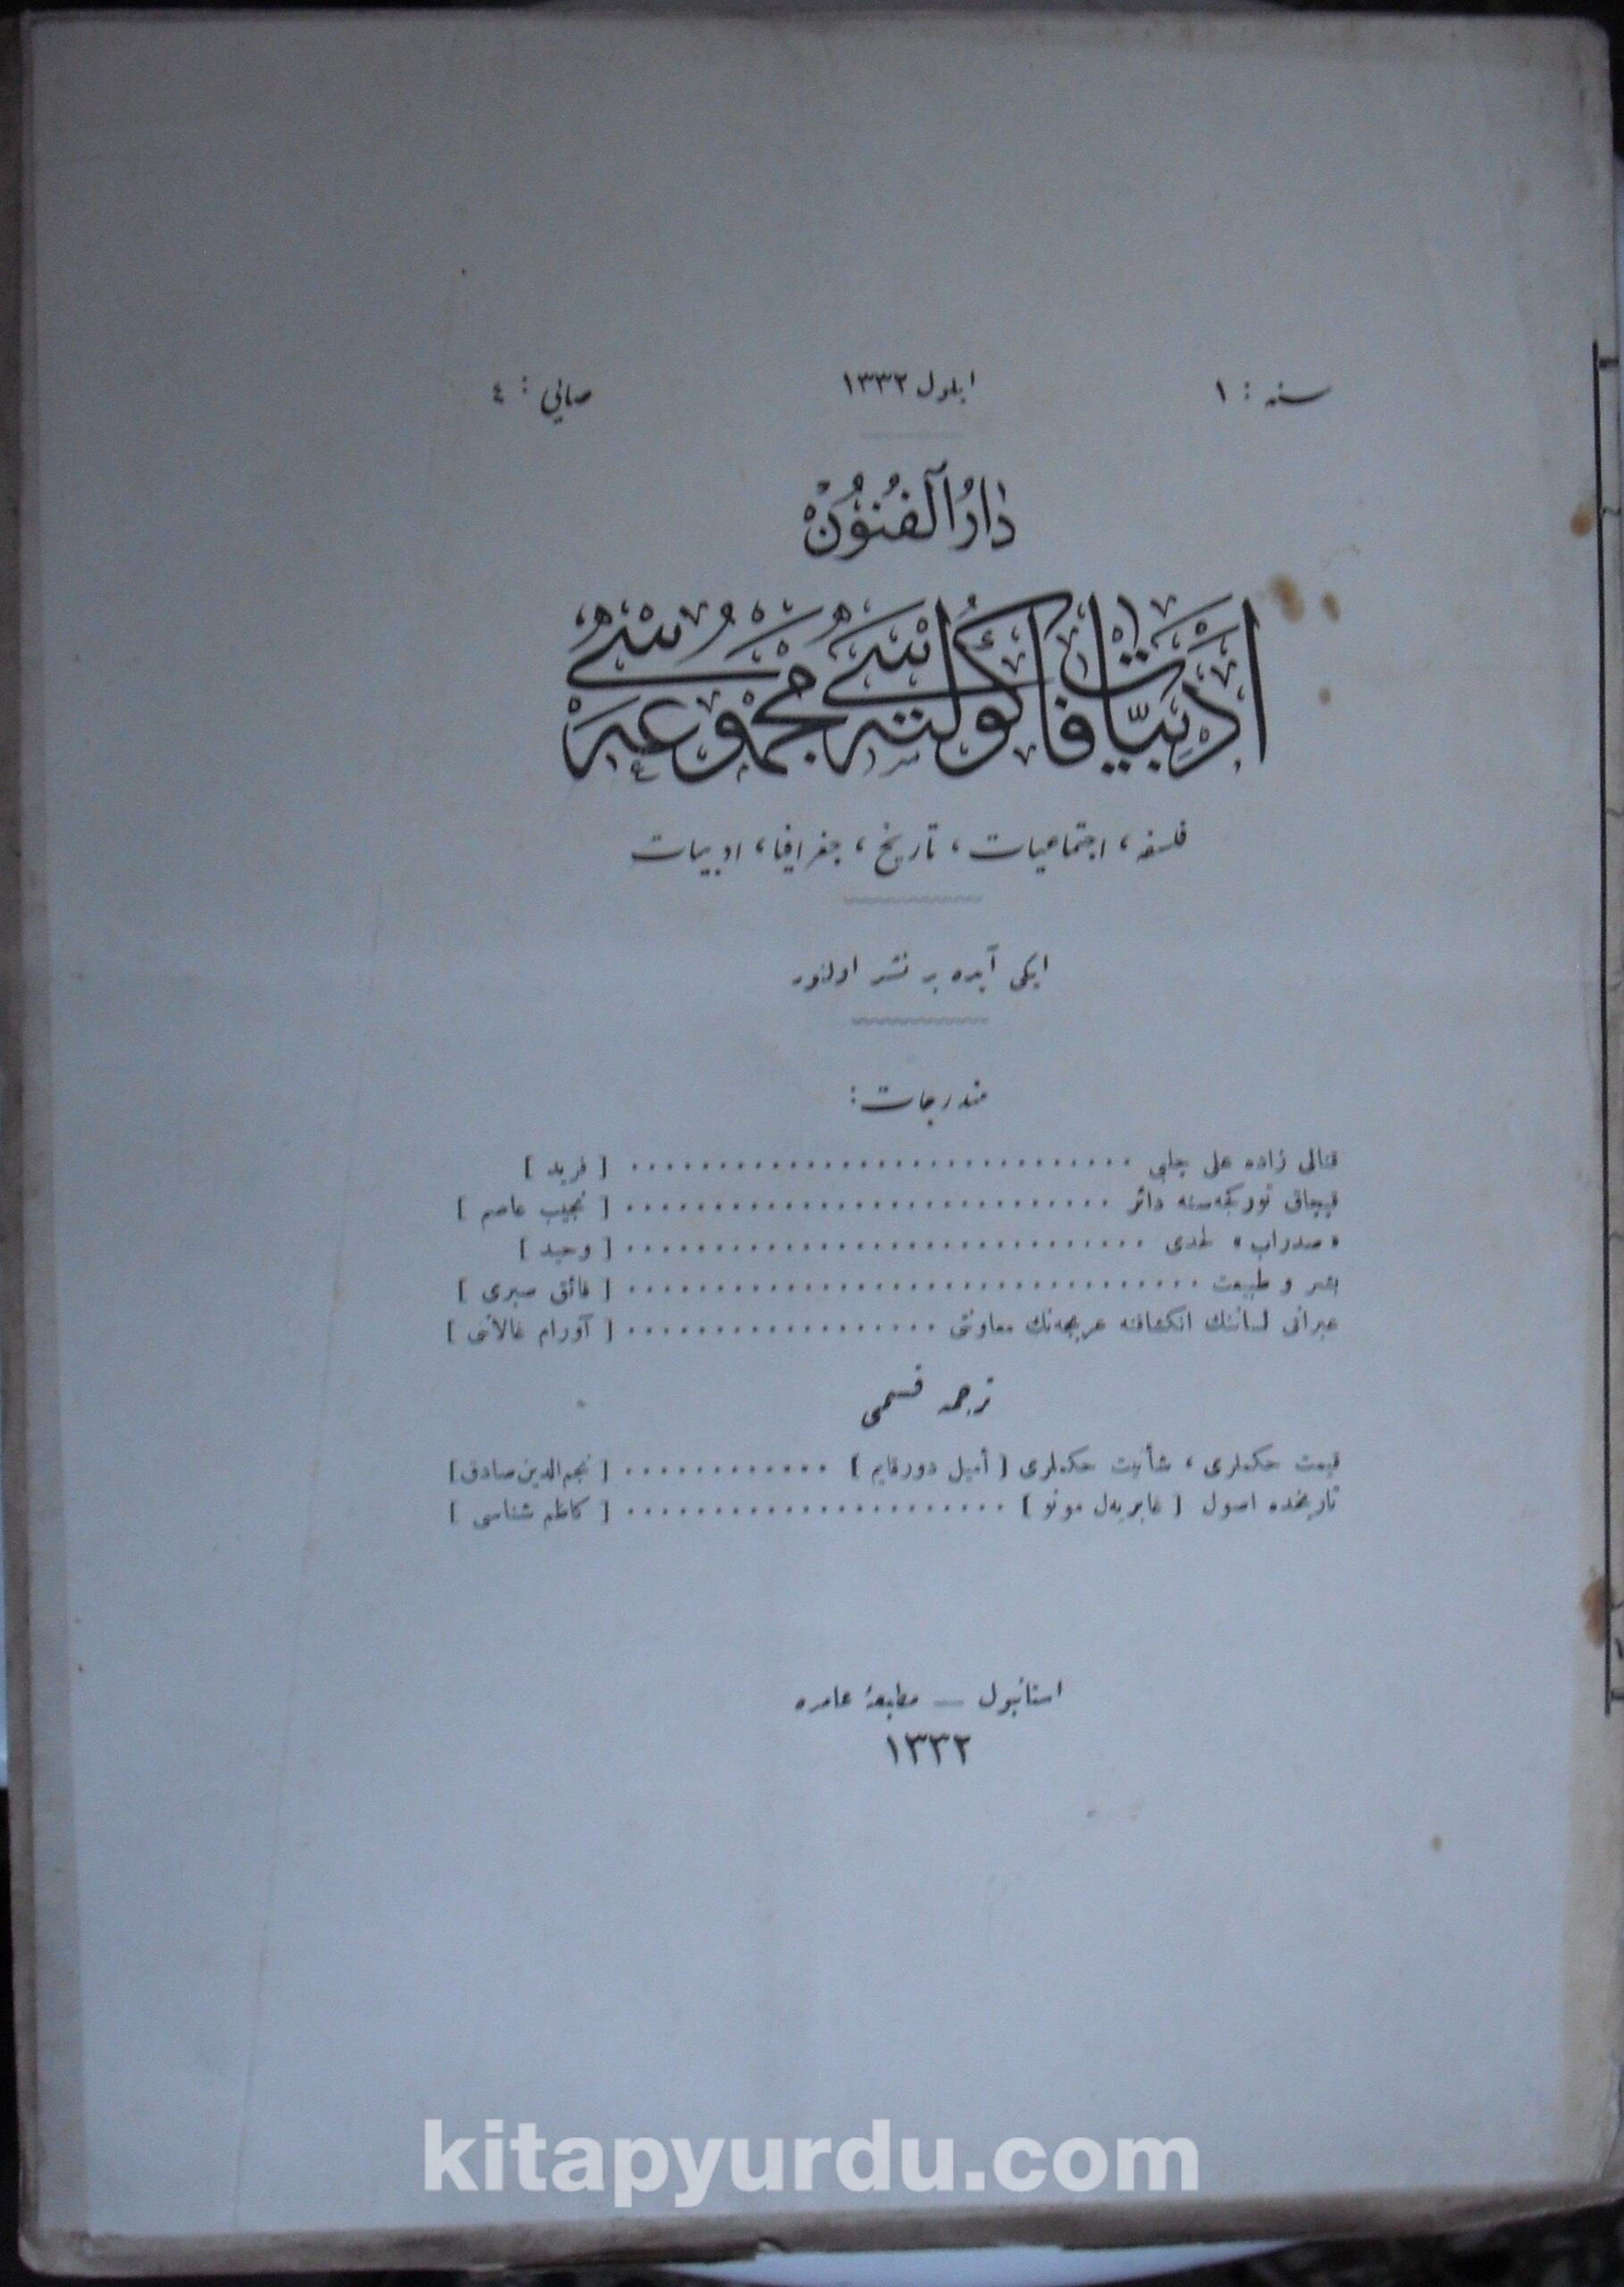 سنه : ١ ايلول ١٣٣٢ صايى : ٤
دَارُ الْفُنُونْ
ادبيات فاكولته سى مجموعه سى
فلسفه ، اجتماعيات ، تاريخ ، جغرافيا ، ادبيات
ايكى آيده بر نشر اولنور
مندرجات :
قنالى زاده على چلبى [ فريد ]
قپچاق توركجه سنه دائر [ نجيب عاصم ]
« صدراب » لحدى [ وحيد ]
بشر و طبيعت [ فائق صبرى ]
عبرانى لساننك انكشافنه عربجه نك معاونتى [ آورام غالانتى ]
ترجمه قسمى
قيمت حكملرى ، شأنيت حكملرى [ أميل دورقايم ] [ نجم الدين صادق ]
تاريخده اصول [ غابريه ل مونو ] [ كاظم شناسى ]
استانبول — مطبعۀ عامره
١٣٣٢
kitapyurdu.com